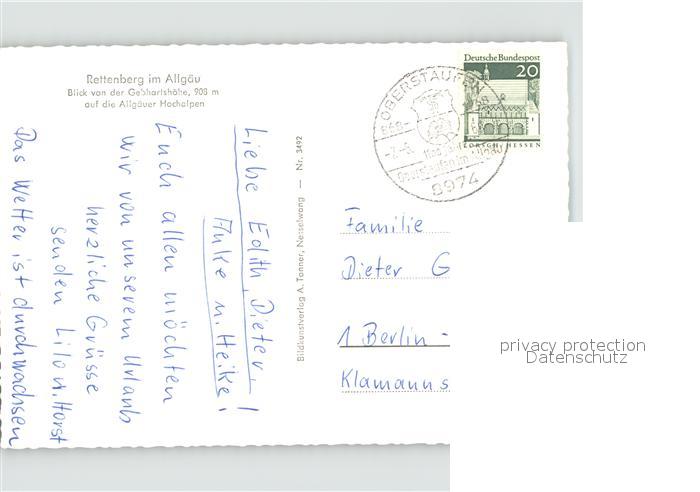 Rettenberg im Allgäu
Blick von der Gebhartshöhe, 908 m
auf die Allgäuer Hochalpen
Liebe Edith, Dieter,
Anke u. Heike!
Euch allen möchten
wir von unserem Urlaub
herzliche Grüsse
senden Lilo u. Horst
Das Wetter ist durchwachsen
Bildkunstverlag A. Tanner, Nesselwang — Nr. 3492
Deutsche Bundespost
20
LORSCH, HESSEN
OBERSTAUFEN
868-
8974
Familie
Dieter G
1 Berlin -
Klamanns
privacy protection
Datenschutz